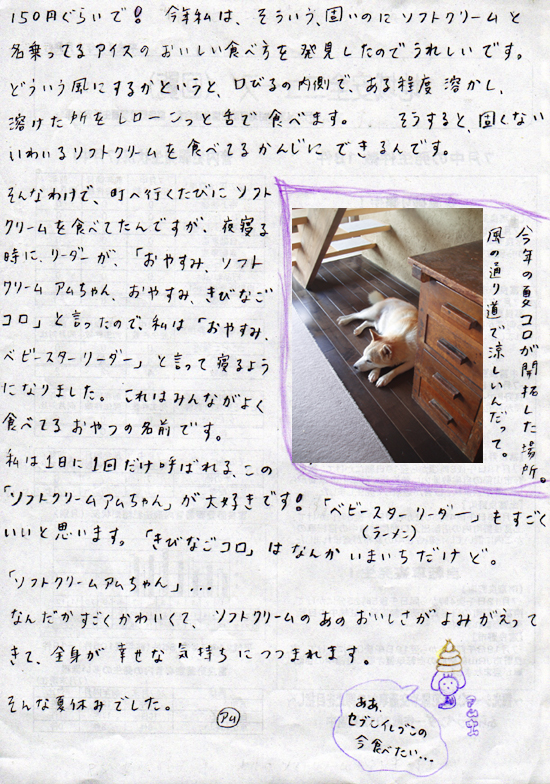 150円ぐらいで！ 今年私は、そういう、固いのにソフトクリームと
名乗ってるアイスのおいしい食べ方を発見したのでうれしいです。
どういう風にするかというと、口びるの内側で、ある程度溶かし、
溶けた所をしローこっと舌で食べます。 そうすると、固くない
いわゆるソフトクリームを食べてるかんじにできるんです。
そんなわけで、町へ行くたびにソフト
クリームを食べてたんですが、夜寝る
時に、リーダーが、「おやすみ、ソフト
クリームアムちゃん、おやすみ、きびなご
コロ」と言ったので、私は「おやすみ、
ベビースターリーダー」と言って寝るよう
になりました。これはみんながよく
食べてるおやつの名前です。
今年の夏コロが開拓した場所。
風の通り道で涼しいんだって。
私は1日に1回だけ呼ばれる、この
「ソフトクリームアムちゃん」が大好きです！「ベビースターリーダー」もすごく
(ラーメン)
いいと思います。「きびなごコロ」はなんかいまいちだけど。
「ソフトクリームアムちゃん」...
なんだかすごくかわいくて、ソフトクリームのあのおいしさがよみがえって
きて、全身が幸せな気持ちにつつまれます。
そんな夏休みでした。
アム
ああ、
セブンイレブンの
今食べたい...